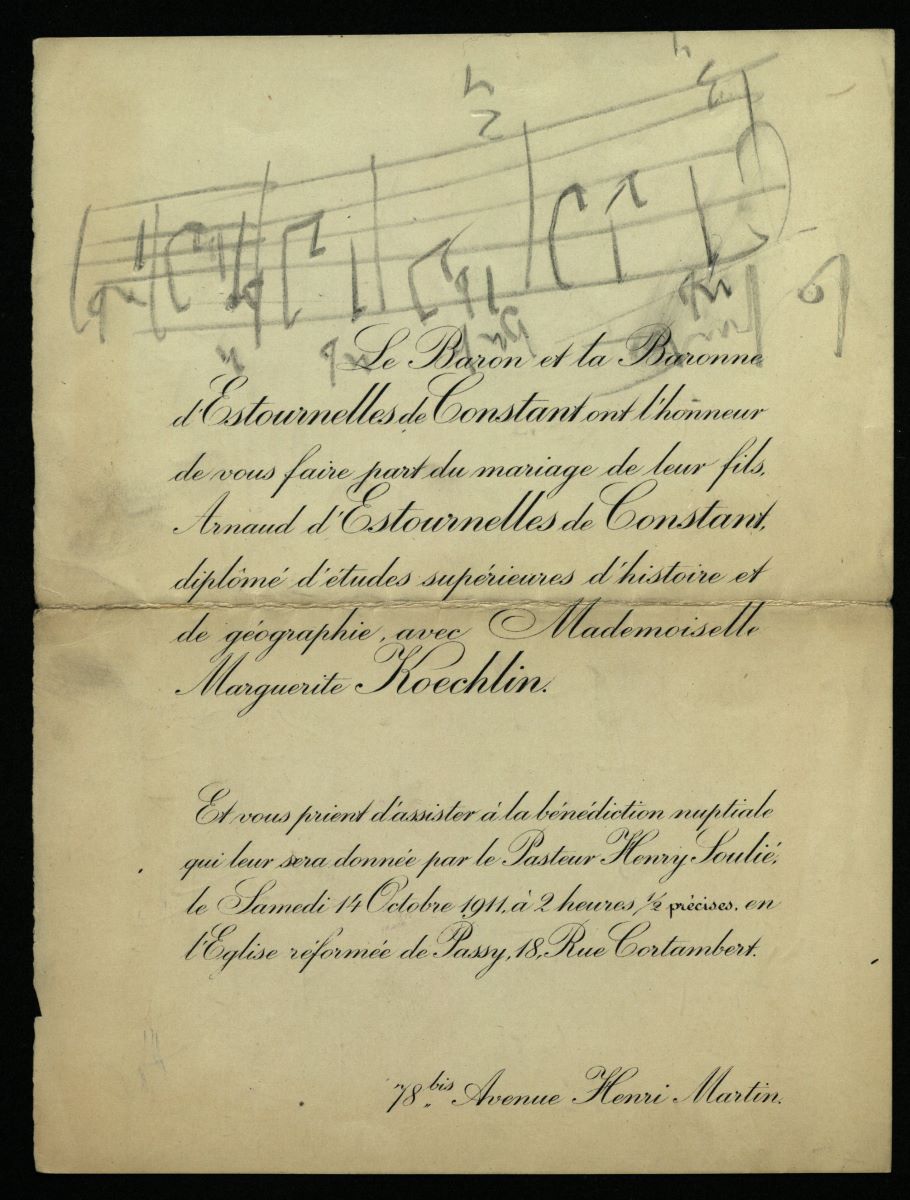 Le Baron et la Baronne
d'Estournelles de Constant ont l'honneur
de vous faire part du mariage de leur fils,
Arnaud d'Estournelles de Constant,
diplômé d'études supérieures d'histoire et
de géographie, avec Mademoiselle
Marguerite Koechlin.
Et vous prient d'assister à la bénédiction nuptiale
qui leur sera donnée par le Pasteur Henry Soulié,
le Samedi 14 Octobre 1911, à 2 heures 1/2 précises. en
l'Eglise réformée de Passy, 18, Rue Cortambert.
78 bis Avenue Henri Martin.